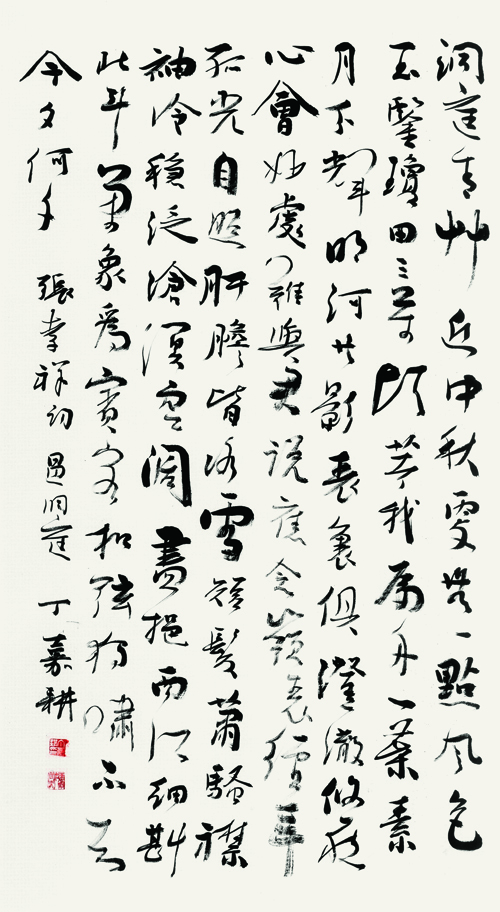 洞庭青艸近中秋更無一點風色
玉鑒瓊田三萬頃著我扁舟一葉素
月分輝明河共影表裏俱澄澈悠然
心會妙處難與君說應念嶺表經年
孤光自照肝膽皆冰雪短髮蕭騷襟
袖冷穩泛滄溟空闊盡挹西江細斟
北斗萬象為賓客扣弦獨嘯不知
今夕何夕 張孝祥詞 過洞庭 丁嘉耕